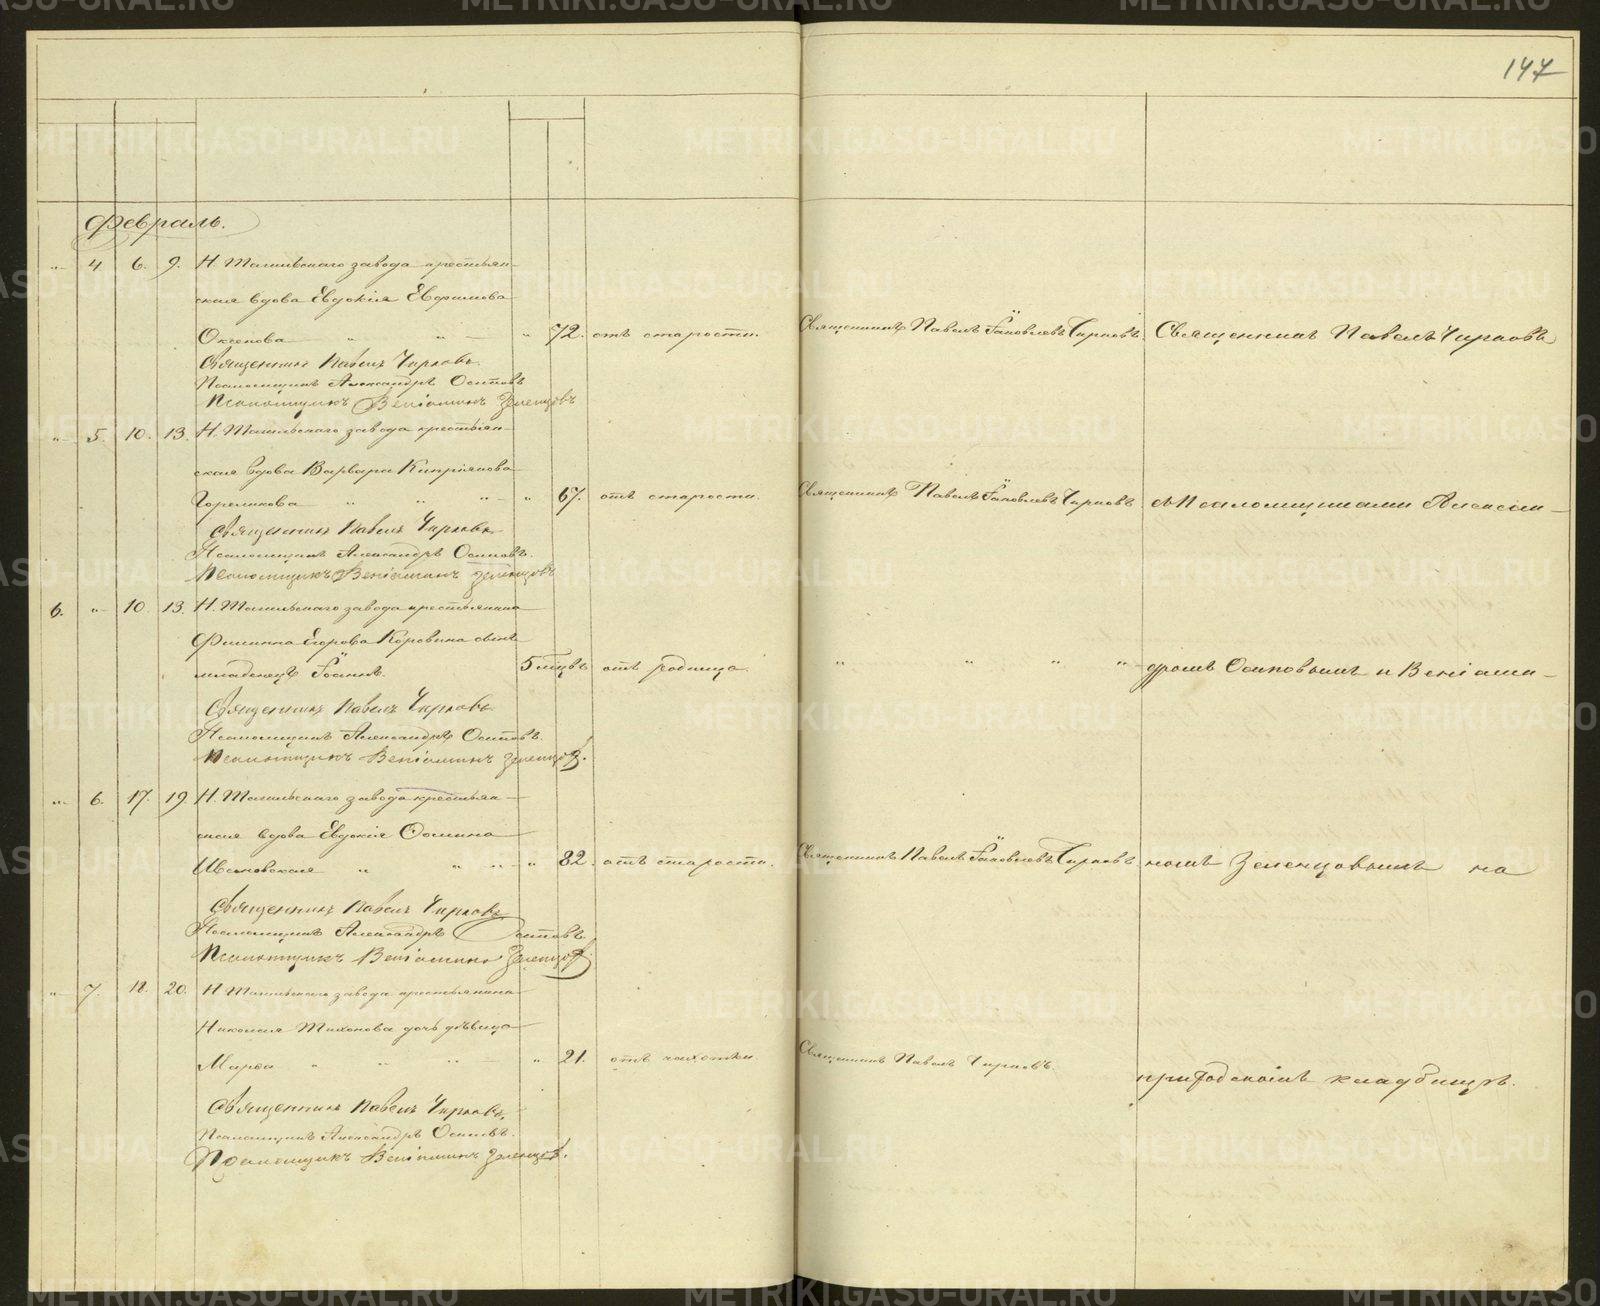 147
Февраль.
" 4 6. 9. Н. Тагильскаго завода крестьян-
ская вдова Евдокія Евфимова
Оксенова " " " 72. отъ старости. Священникъ Павелъ Іаковлевъ Чирковъ. Священникъ Павелъ Чирковъ
Священникъ Павелъ Чирковъ.
Псаломщикъ Александръ Осиповъ
Псаломщикъ Веніаминъ Зеленцовъ
" 5. 10. 13. Н. Тагильскаго завода крестьян-
ская вдова Варвара Кипріянова
Горелкова " " " " 67. отъ старости. Священникъ Павелъ Іаковлевъ Чирковъ съ Псаломщиками Алексан-
Священникъ Павелъ Чирковъ
Псаломщикъ Александръ Осиповъ.
Псаломщикъ Веніаминъ Зеленцовъ
6. " 10. 13. Н. Тагильскаго завода крестьянина
Филиппа Егорова Коровина сынъ
младенецъ Іоаннъ. 5 мцвъ отъ родимца. " " " " дромъ Осиповымъ и Веніами-
Священникъ Павелъ Чирковъ.
Псаломщикъ Александръ Осиповъ.
Псаломщикъ Веніаминъ Зеленцов.
" 6. 17. 19. Н. Тагильскаго завода крестьян-
ская вдова Евдокія Фомина
" " " " 82. отъ старости. Священникъ Павелъ Іаковлевъ Чирковъ. номъ Зеленцовымъ на
Священникъ Павелъ Чирковъ
Псаломщикъ Александръ Осиповъ.
Псаломщикъ Веніаминъ Зеленцов
" 7. 18. 20. Н. Тагильскаго завода крестьянина
Николая Тихонова дочь дѣвица
Марѳа " " " " 21. отъ чахотки. Священникъ Павелъ Чирковъ. приходскомъ кладбищѣ.
Священникъ Павелъ Чирковъ.
Псаломщикъ Александръ Осиповъ.
Псаломщикъ Веніаминъ Зеленцов.
METRIKI.GASO-URAL.RU